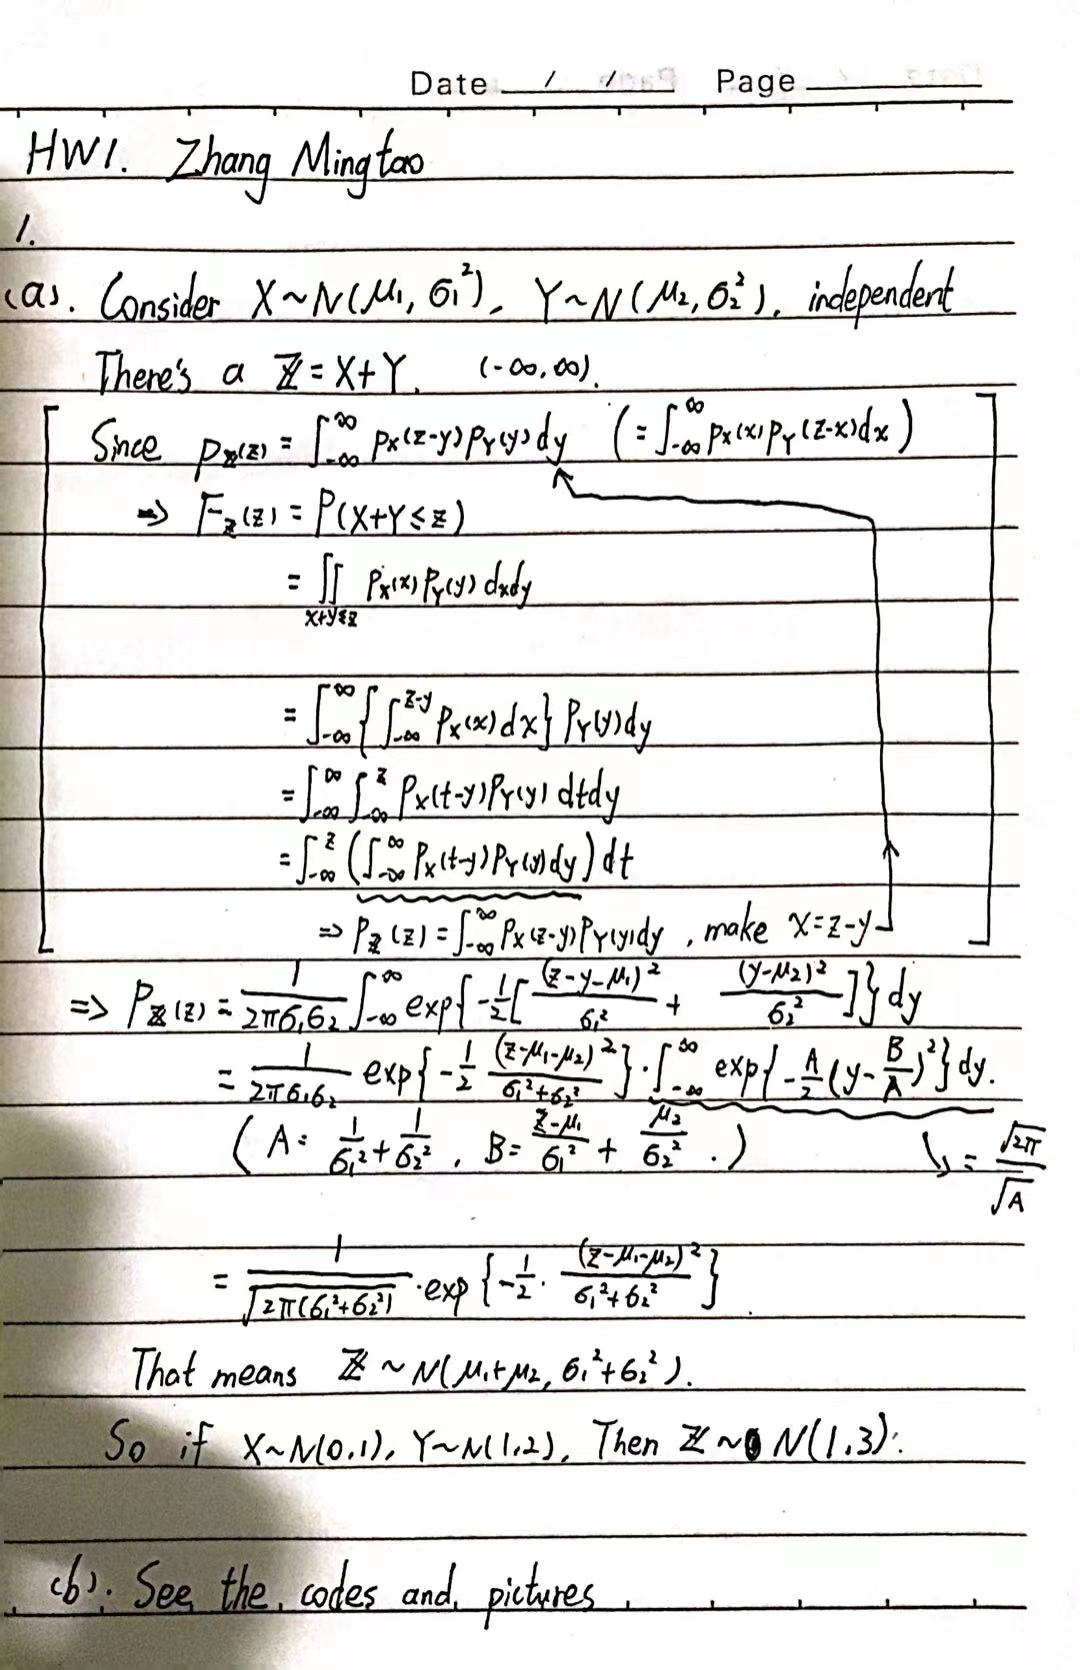 Date / / Page
HW1. Zhang Mingtao
1.
(a). Consider X~N(μ₁, σ₁²), Y~N(μ₂, σ₂²), independent
There's a Z = X+Y. (-∞, ∞).
Since p_Z(z) = ∫_{-∞}^{∞} p_X(z-y) p_Y(y) dy (= ∫_{-∞}^{∞} p_X(x) p_Y(z-x) dx)
⇒ F_Z(z) = P(X+Y ≤ z)
= ∬_{x+y≤z} p_X(x) p_Y(y) dxdy
= ∫_{-∞}^{∞} { ∫_{-∞}^{z-y} p_X(x) dx } p_Y(y) dy
= ∫_{-∞}^{∞} ∫_{-∞}^{z} p_X(t-y) p_Y(y) dtdy
= ∫_{-∞}^{z} ( ∫_{-∞}^{∞} p_X(t-y) p_Y(y) dy ) dt
⇒ p_Z(z) = ∫_{-∞}^{∞} p_X(z-y) p_Y(y) dy, make x=z-y
⇒ p_Z(z) = 1/(2πσ₁σ₂) ∫_{-∞}^{∞} exp{ -1/2 [ (z-y-μ₁)²/σ₁² + (y-μ₂)²/σ₂² ] } dy
= 1/(2πσ₁σ₂) exp{ -1/2 (z-μ₁-μ₂)²/(σ₁²+σ₂²) } · ∫_{-∞}^{∞} exp{ -A/2 (y - B/A)² } dy.
( A = 1/σ₁² + 1/σ₂², B = (z-μ₁)/σ₁² + μ₂/σ₂². ) ↳ = √2π/√A
= 1/√(2π(σ₁²+σ₂²)) · exp{ -1/2 · (z-μ₁-μ₂)²/(σ₁²+σ₂²) }
That means Z ~ N(μ₁+μ₂, σ₁²+σ₂²).
So if X~N(0,1), Y~N(1,2), Then Z ~ N(1,3).
(b). See the codes and pictures